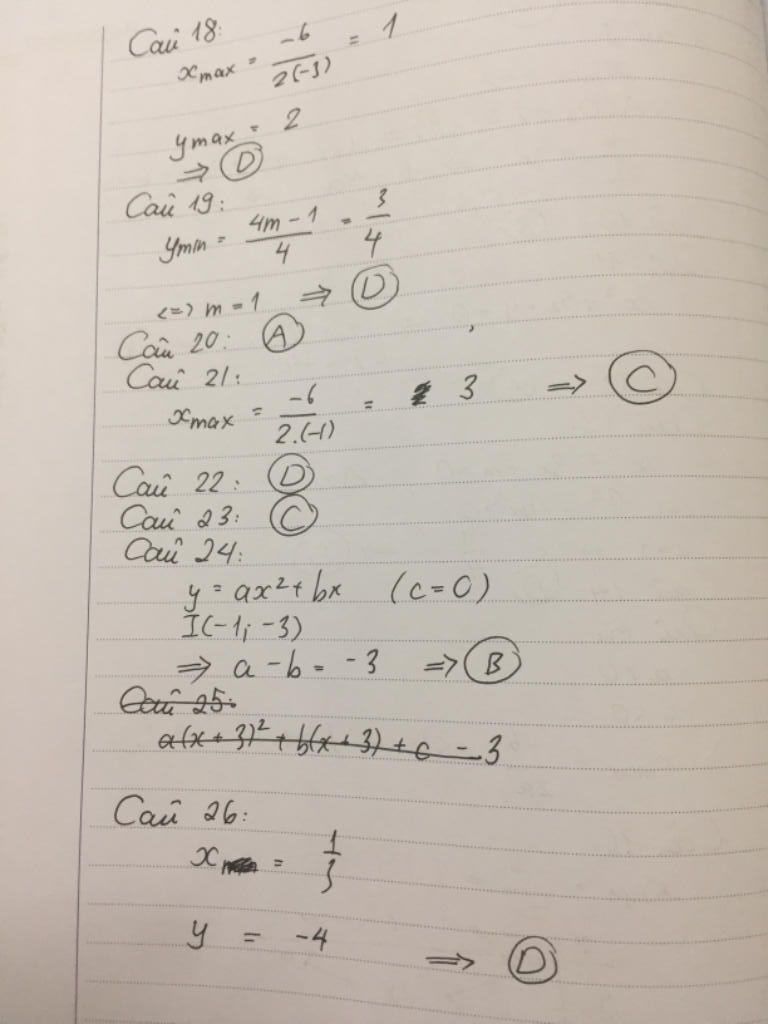 Câu 18:
x max = -6 / 2(-3) = 1
y max = 2
⇒ D
Câu 19:
y min = 4m - 1 / 4 = 3 / 4
<=> m = 1 ⇒ D
Câu 20: A
Câu 21:
x max = -6 / 2.(-1) = 3 ⇒ C
Câu 22: D
Câu 23: C
Câu 24:
y = ax² + bx (c = 0)
I(-1; -3)
⇒ a - b = -3 ⇒ B
Câu 25:
a(x + 3)² + b(x + 3) + c - 3
Câu 26:
x = 1 / 3
y = -4 ⇒ D